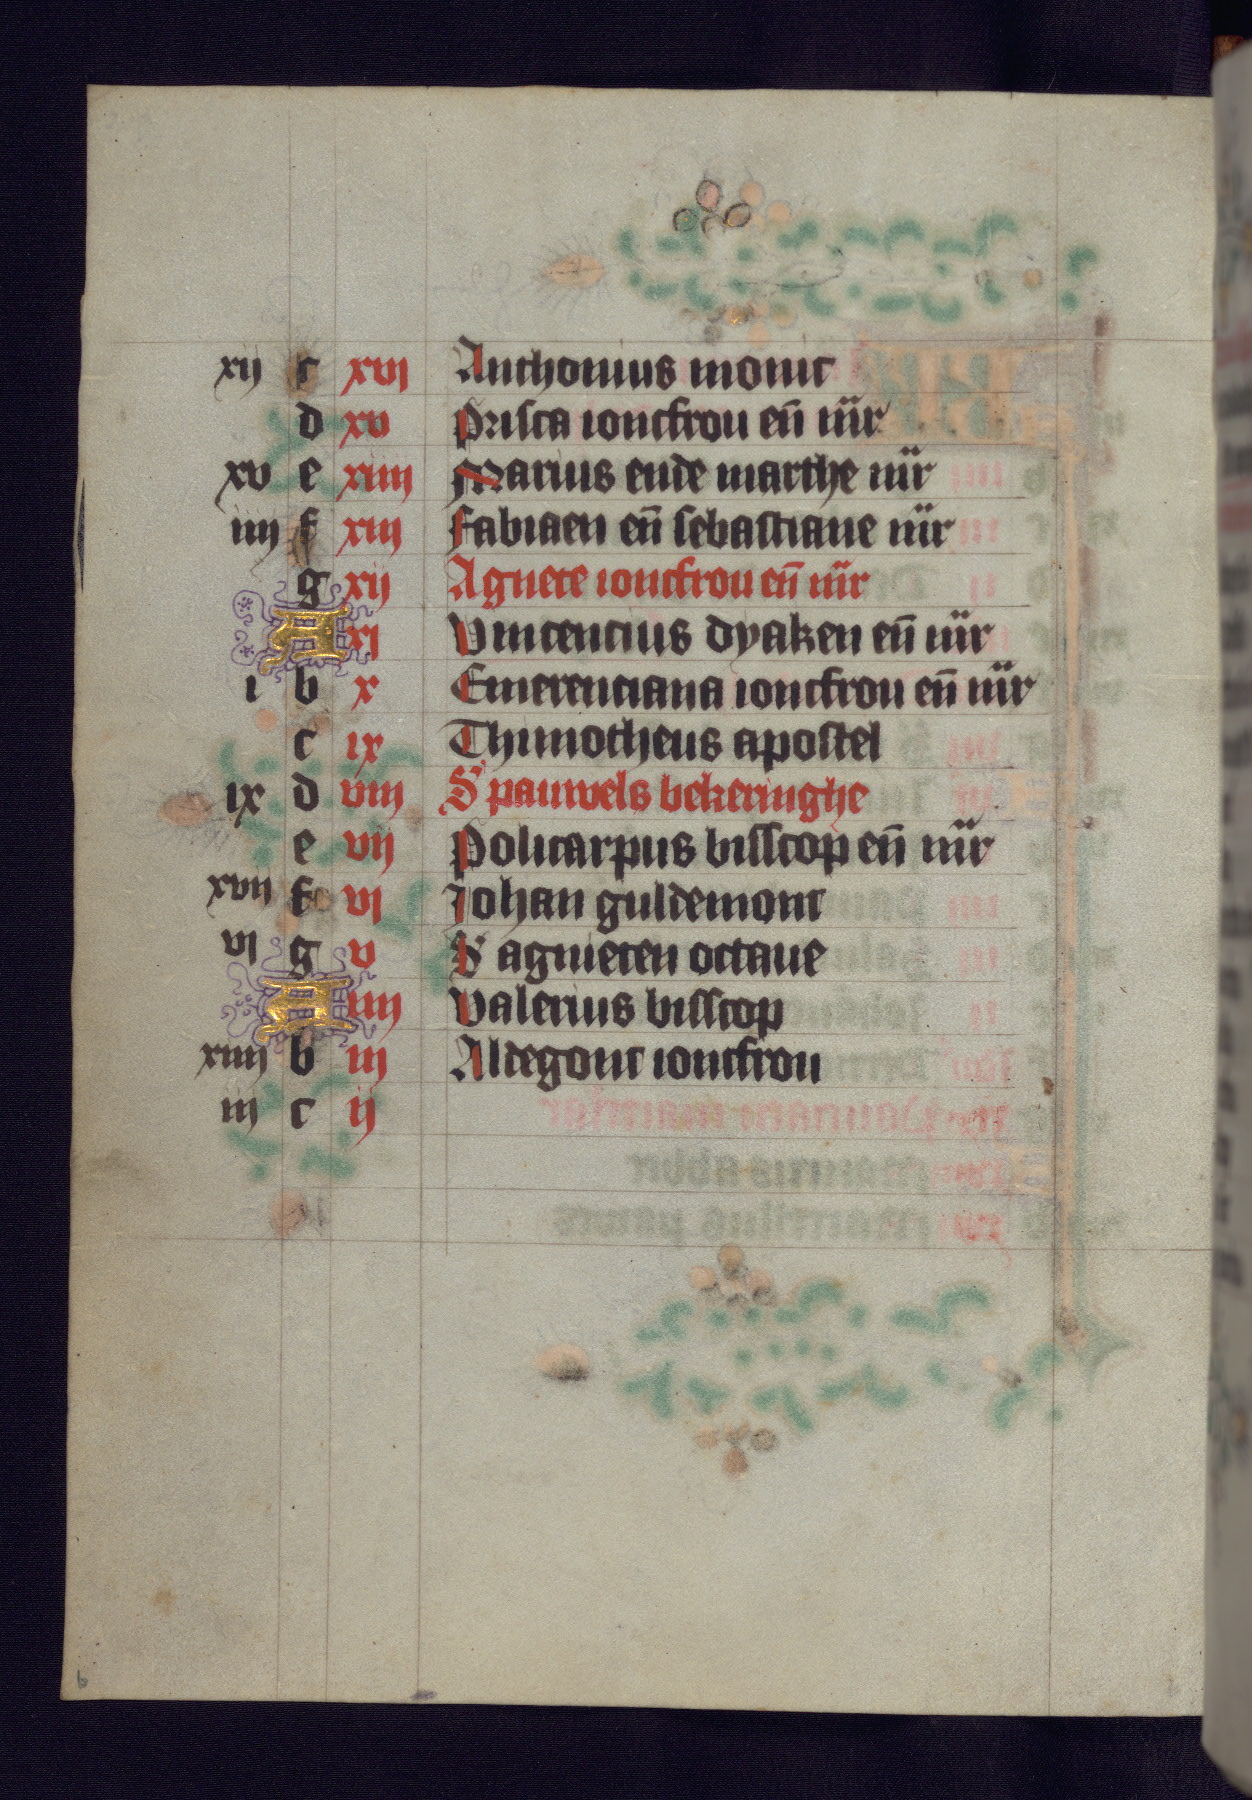 xij c xvi Anthonius monic
d xv Prisca ioncfrou en̄ mr̄
xv e xiiij Marius ende marthe mr̄
iiij f xiij Fabiaen en̄ sebastiane mr̄
g xij Agnete ioncfrou en̄ mr̄
A xi Vincencius dyaken en̄ mr̄
i b x Emerenciana ioncfrou en̄ mr̄
c ix Thimotheus apostel
ix d viij S' pauwels bekeringhe
e vij Policarpus bisscop en̄ mr̄
xvij f vi Johan guldemont
vi g v S' agnieten octaue
A iiij Valerius bisscop
xiiij b iij Aldegont ioncfrou
iij c ij